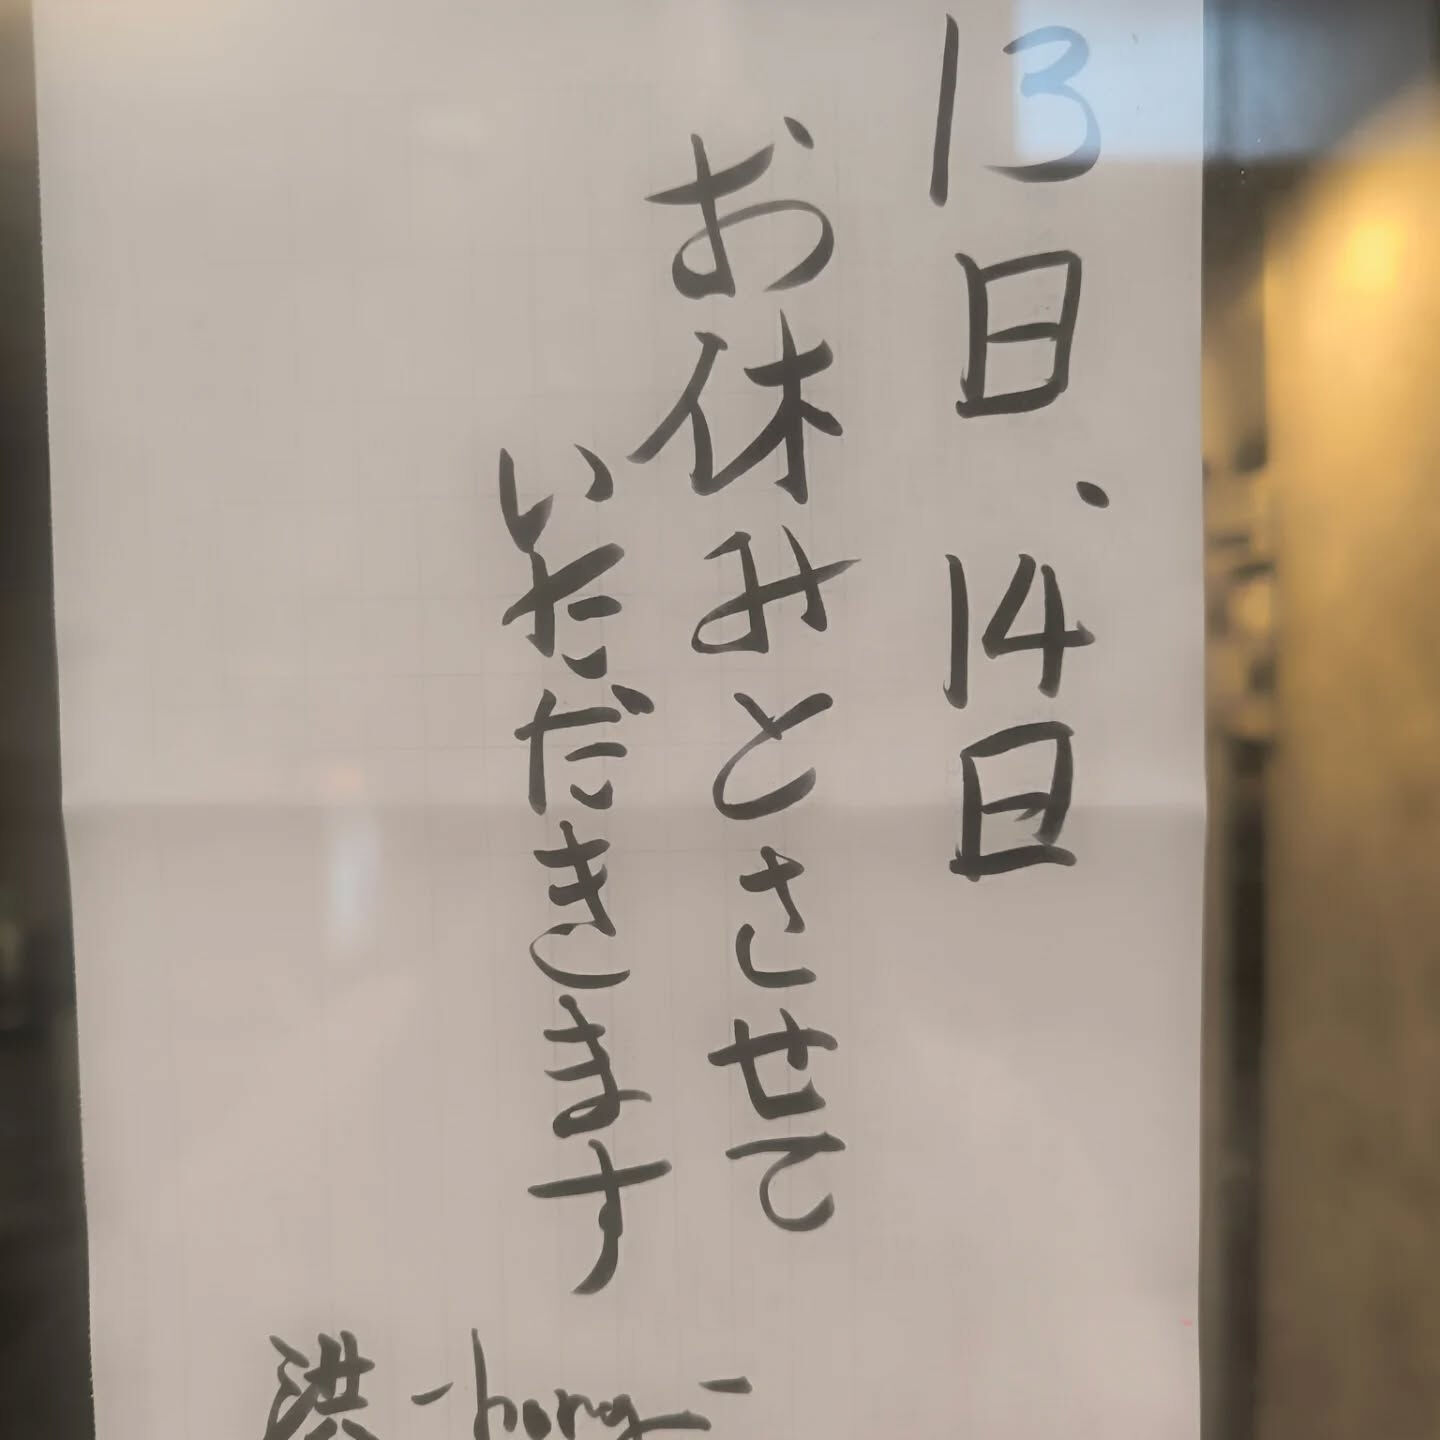 13日、14日
お休みとさせて
いただきます
洪 -hong-